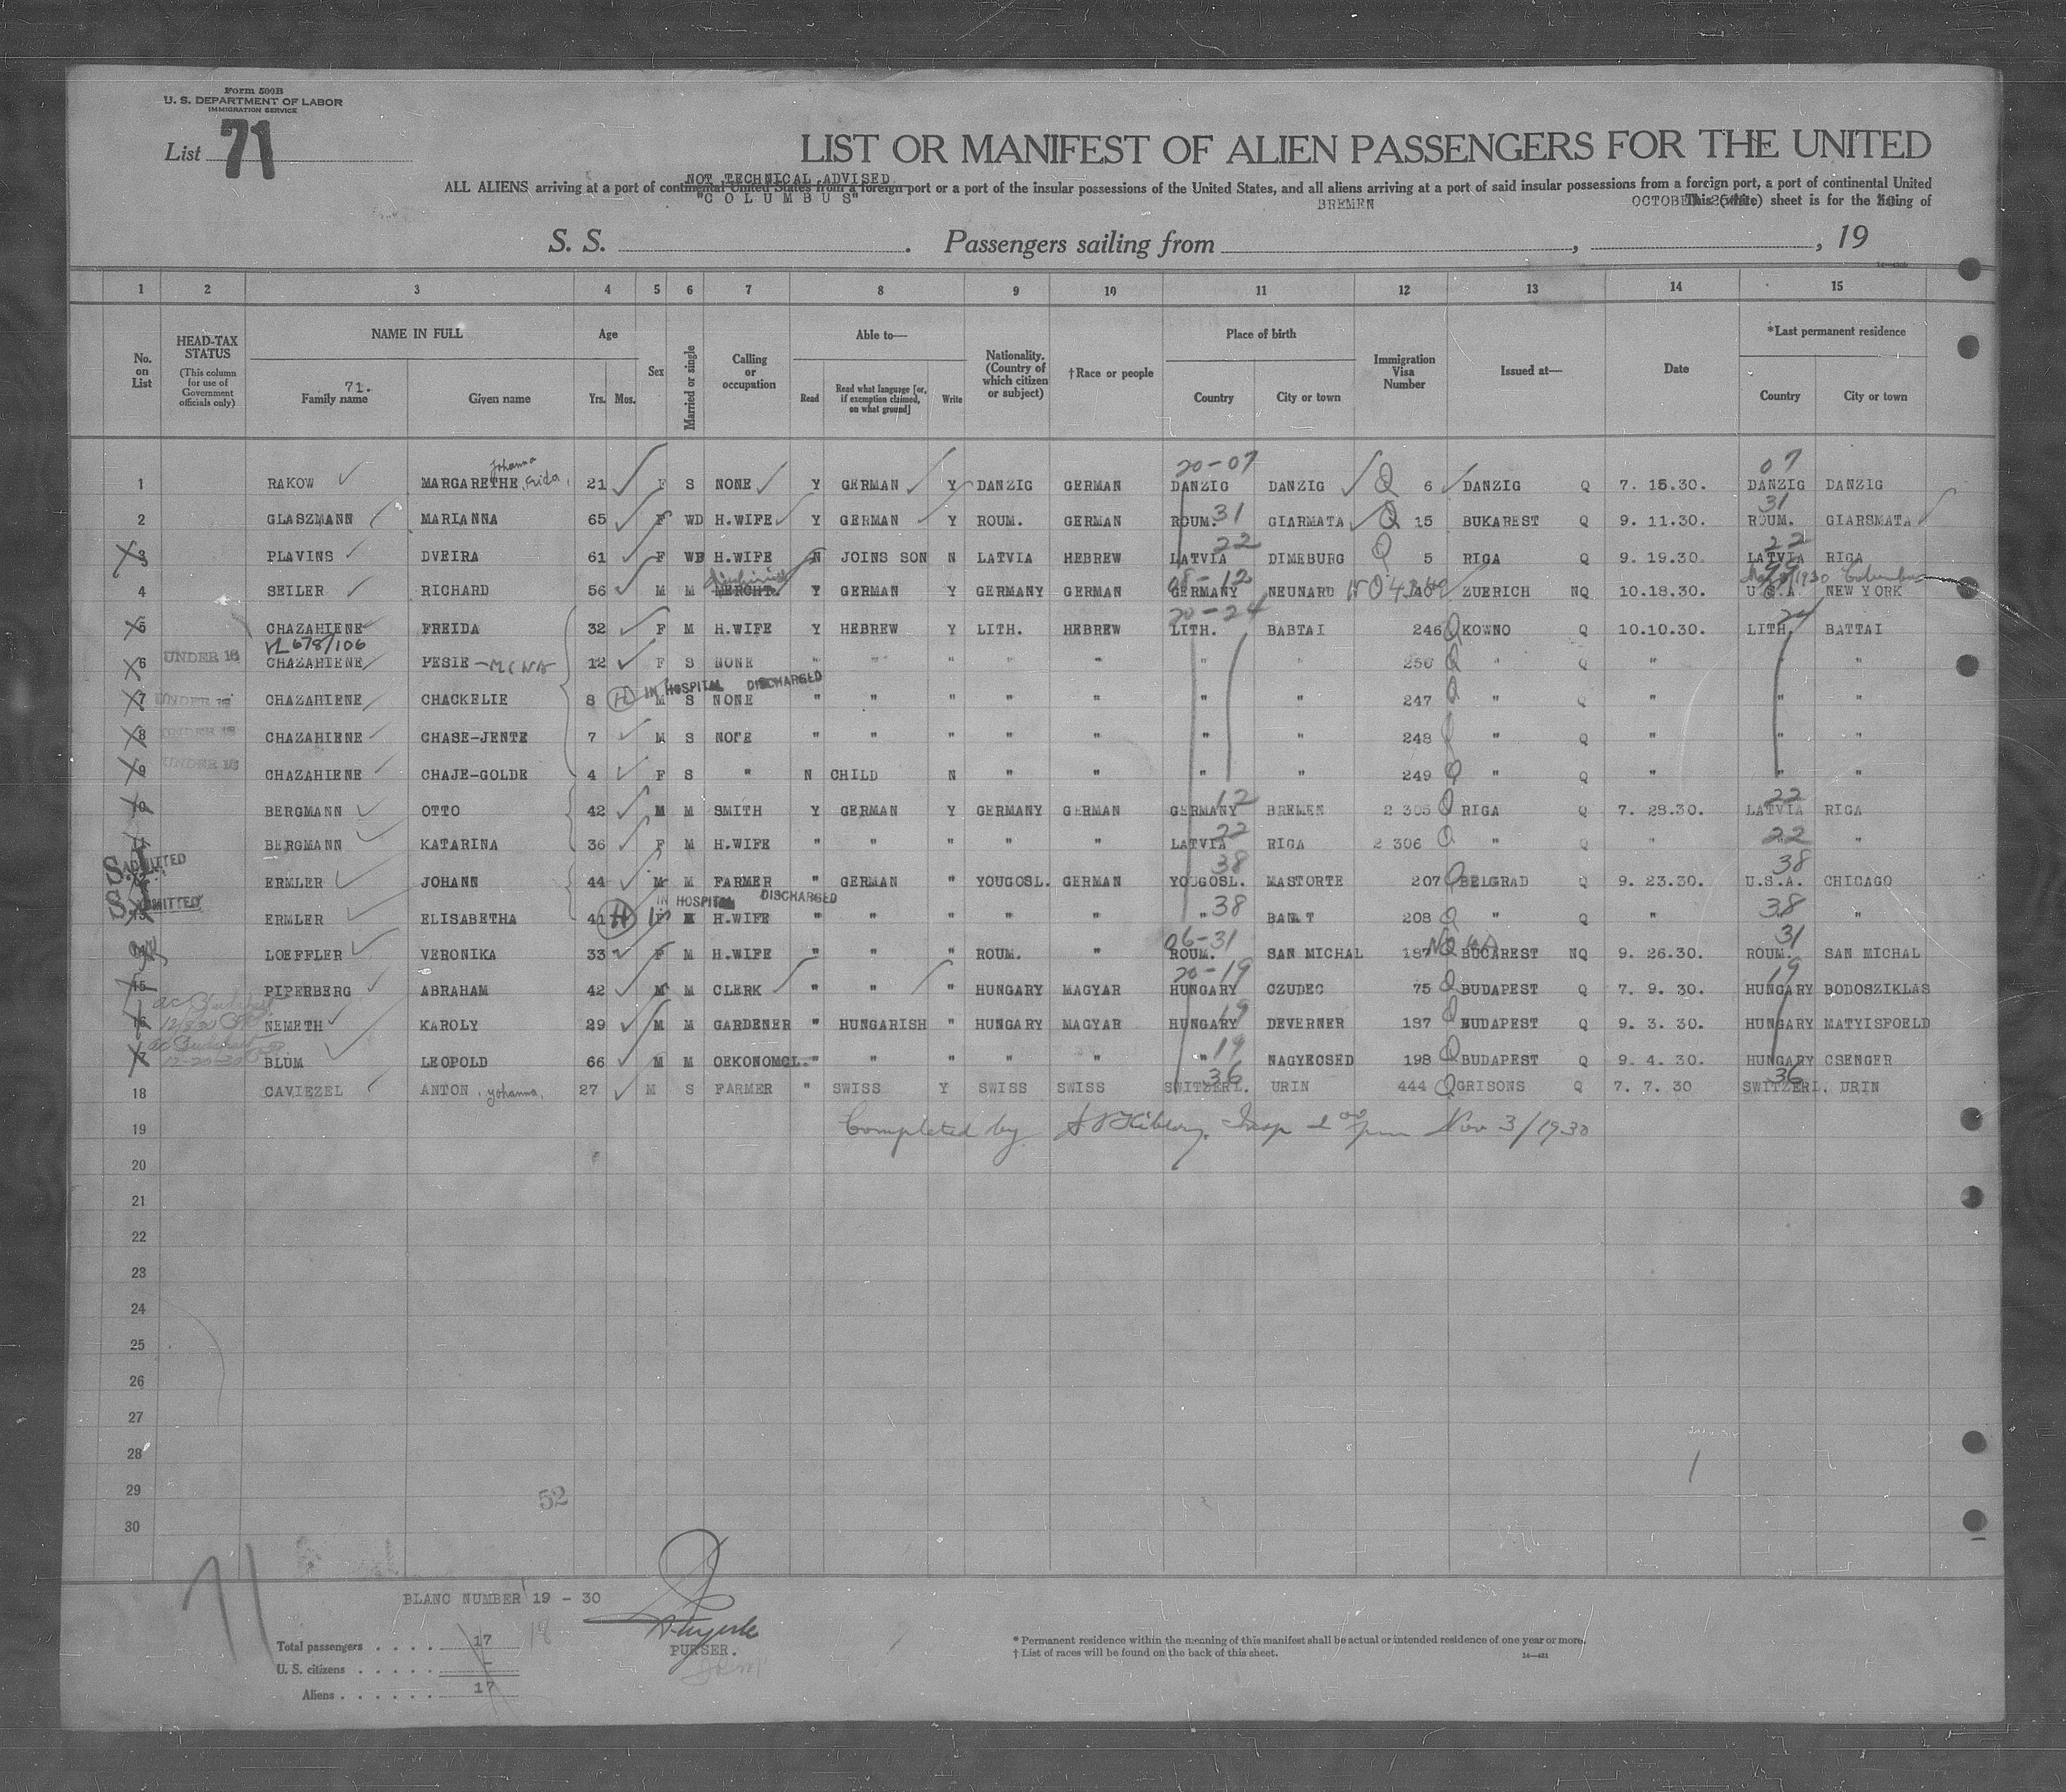 Form 500B
U. S. DEPARTMENT OF LABOR
IMMIGRATION SERVICE
List 71
LIST OR MANIFEST OF ALIEN PASSENGERS FOR THE UNITED
NOT TECHNICAL ADVISED
ALL ALIENS arriving at a port of continental United States from a foreign port or a port of the insular possessions of the United States, and all aliens arriving at a port of said insular possessions from a foreign port, a port of continental United
"COLUMBUS" BREMEN OCTOBER This (white) sheet is for the listing of
S. S. Passengers sailing from , , 19
1 2 3 4 5 6 7 8 9 10 11 12 13 14 15
No. on List
HEAD-TAX STATUS (This column for use of Government officials only)
NAME IN FULL 71. Family name Given name
Age Yrs. Mos.
Sex
Married or single
Calling or occupation
Able to— Read Read what language [or, if exemption claimed, on what ground] Write
Nationality. (Country of which citizen or subject)
†Race or people
Place of birth Country City or town
Immigration Visa Number
Issued at—
Date
*Last permanent residence Country City or town
Johanna 20-07 07
1 RAKOW MARGARETHE Frida, 21 F S NONE Y GERMAN Y DANZIG GERMAN DANZIG DANZIG Q 6 DANZIG Q 7. 15.30. DANZIG DANZIG
31 31
2 GLASZMANN MARIANNA 65 F WD H.WIFE Y GERMAN Y ROUM. GERMAN ROUM. GIARMATA Q 15 BUKAREST Q 9. 11.30. ROUM. GIARSMATA
22 22
3 PLAVINS DVEIRA 61 F WD H.WIFE N JOINS SON N LATVIA HEBREW LATVIA DIMEBURG Q 5 RIGA Q 9. 19.30. LATVIA RIGA
08-12 99 1930 Columbus
4 SEILER RICHARD 56 M M MERCHT. Y GERMAN Y GERMANY GERMAN GERMANY NEUNARD ZUERICH NQ 10.18.30. U.S.A. NEW YORK
20-24 24
5 CHAZAHIENE FREIDA 32 F M H.WIFE Y HEBREW Y LITH. HEBREW LITH. BABTAI 246 Q KOWNO Q 10.10.30. LITH. BATTAI
VL 678/106
6 UNDER 16 CHAZAHIENE PESIE 12 F S NONE " " " " " " " 250 Q " Q " " "
IN HOSPITAL DISCHARGED
7 UNDER 16 CHAZAHIENE CHACKELIE 8 H M S NONE " " " " " " " 247 Q " Q " " "
8 UNDER 16 CHAZAHIENE CHASE-JENTE 7 M S NONE " " " " " " " 248 Q " Q " " "
9 UNDER 16 CHAZAHIENE CHAJE-GOLDE 4 F S " N CHILD N " " " " 249 Q " Q " " "
12 22
10 BERGMANN OTTO 42 M M SMITH Y GERMAN Y GERMANY GERMAN GERMANY BREMEN 2 305 Q RIGA Q 7. 28.30. LATVIA RIGA
22 22
11 BERGMANN KATARINA 36 F M H.WIFE " " " " " LATVIA RIGA 2 306 Q " Q " "
S.I. ADMITTED 38 38
12 ERMLER JOHANN 44 M M FARMER " GERMAN " YOUGOSL. GERMAN YOUGOSL. MASTORTE 207 Q BELGRAD Q 9. 23.30. U.S.A. CHICAGO
S.I. ADMITTED IN HOSPITAL DISCHARGED 38 38
13 ERMLER ELISABETHA 41 H F M H.WIFE " " " " " " BANAT 208 Q " Q " "
06-31 NQ 31
14 LOEFFLER VERONIKA 33 F M H.WIFE " " " ROUM. " ROUM. SAN MICHAL 187 BUCAREST NQ 9. 26.30. ROUM. SAN MICHAL
20-19 19
15 PIPERBERG ABRAHAM 42 M M CLERK " " " HUNGARY MAGYAR HUNGARY CZUDEC 75 Q BUDAPEST Q 7. 9. 30. HUNGARY BODOSZIKLAS
19
16 NEMETH KAROLY 29 M M GARDENER " HUNGARISH " HUNGARY MAGYAR HUNGARY DEVERNER 187 Q BUDAPEST Q 9. 3. 30. HUNGARY MATYISFOELD
19
17 BLUM LEOPOLD 66 M M OEKONOMCL. " " " " " " NAGYECSED 198 Q BUDAPEST Q 9. 4. 30. HUNGARY CSENGER
36 36
18 CAVIEZEL ANTON, Johanna, 27 M S FARMER " SWISS Y SWISS SWISS SWITZERL. URIN 444 Q GRISONS Q 7. 7. 30 SWITZERL. URIN
19 Completed by Insp Nov 3/1930
20
21
22
23
24
25
26
27
28
29
52
30
71
BLANC NUMBER 19 - 30
Total passengers . . . . 17 18
U. S. citizens . . . . . -
Aliens . . . . . . 17
PURSER.
* Permanent residence within the meaning of this manifest shall be actual or intended residence of one year or more.
† List of races will be found on the back of this sheet.